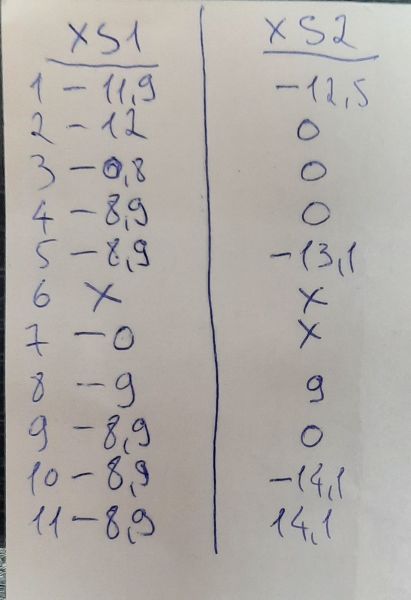 XS1 XS2
1 - 11,9 -12,5
2 - 12 0
3 - 0,8 0
4 - 8,9 0
5 - 8,9 -13,1
6 X X
7 - 0 X
8 - 9 9
9 - 8,9 0
10 - 8,9 -14,1
11 - 8,9 14,1